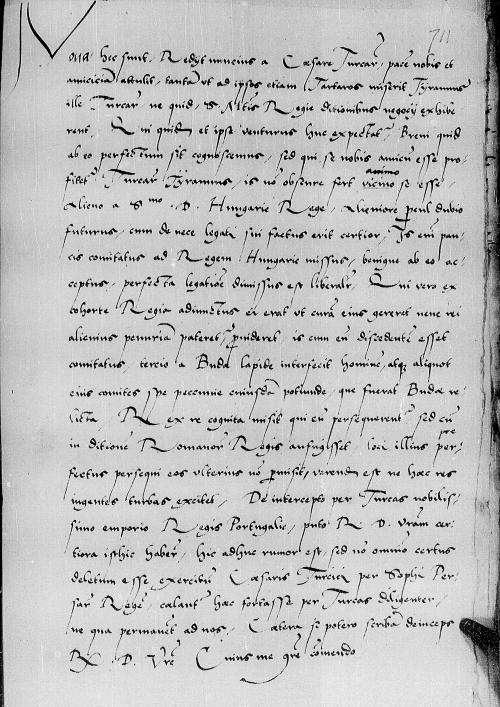 711
Noua hec sunt. Redijt nuncius a Cæsare Turcar, pacē nobis et
amiciciā attulit, tantā ut ad ipsos etiam Tartaros miserit Tyrannus
ille Turcar, ne quid S. Mtis Regie ditionibus negocij exhibe-
rent. Qui quidē et ipse venturus huc expectat. Breui quid
ab eo perfectum sit cognoscemus, sed qui se nobis amicū esse pro-
fitet Turcar Tyrannus, is nō obscure fert animo se esse
alieno a Smo. D. Hungarie Rege, alieniore procul dubio
futurus, cum de nece legati sui factus erit certior. Is em̄ pau-
cis comitatus ad Regem Hungarie missus, benigne ab eo ac-
ceptus, perfecta legatiōe dimissus est liberalr. Qui vero ex
cohorte Regia adiunctus ei erat ut curā eius gereret neue rei
alicuius penuriā pateret, prouideret, is cum eū discedentē esset
comitatus, tercio a Buda lapide interfecit hominē, atq aliquot
eius comites spe pecunie cuiusdā potiunde, que fuerat Budæ re-
licta. Rex re cognita misit qui eū persequerent, sed cū
in ditionē Romanor Regis aufugisset, loci illius pre-
fectus persequi eos ulterius nō promisit, verendū est ne hæc res
ingentes turbas excitet. De intercepto per Turcas nobilis-
simo emporio Regis Portugalie, puto R. D. Vram cer-
tiora isthic habere, hic adhuc rumor est, sed nō omnino certus
deletum esse exercitū Cæsaris Turcici per Sophi Per-
sar Regē, celant hæc fortasse per Turcas diligenter,
ne qua permanet ad nos. Cætera si potero scribā deinceps
R. D. Vre Cuius me gre cōmendo